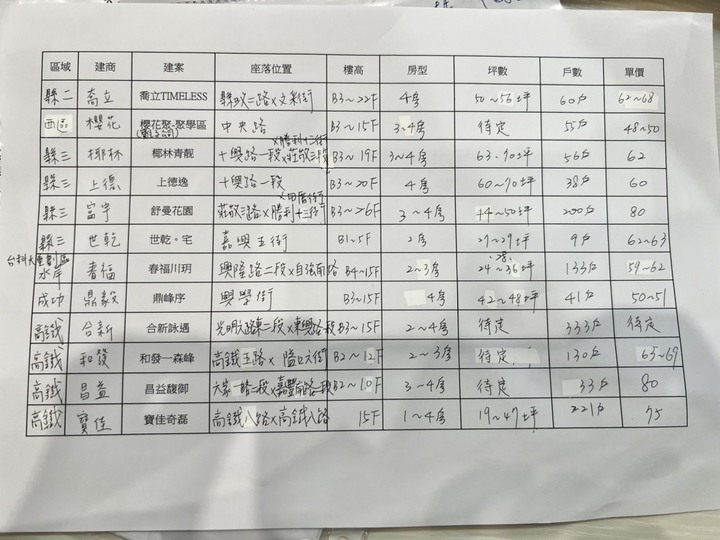 區域 建商 建案 座落位置 樓高 房型 坪數 戶數 單價
縣二 喬立 喬立TIMELESS 縣政二路x文采街 B3~22F 4房 50~56坪 60戶 62~68
西區 櫻花 櫻花聚-聚學區 中央路 B3~15F 3~4房 待定 55戶 48~50
縣三 椰林 椰林青靚 十興路一段x莊敬三路x勝利十二街 B3~19F 3~4房 63.70坪 56戶 62
縣三 上德 上德逸 十興路一段 B3~20F 4房 60~70坪 38戶 60
縣三 富宇 舒曼花園 莊敬三路x勝利十三街 B3~26F 3~4房 44~50坪 200戶 80
縣三 世乾 世乾。宅 嘉興五街 B1~5F 2房 27~29坪 9戶 62~63
台科大重劃區
水岸 春福 春福川玥 興隆路二段x自強南路 B4~15F 2~3房 24~36坪 133戶 59~62
成功 鼎毅 鼎峰序 興學街 B3~15F 4房 42~48坪 41戶 50~51
高鐵 合新 合新詠遇 光明六路東二段x東興路段 B3~15F 2~4房 待定 333戶 待定
高鐵 和發 和發一森峰 高鐵五路x B2~12F 2~3房 待定 130戶 65~69
高鐵 昌益 昌益馥御 大家一路二段x嘉豐南路段 B2~10F 3~4房 待定 33戶 80
高鐵 寶佳 寶佳奇磊 高鐵八路x高鐵八路 15F 1~4房 19~47坪 221戶 75